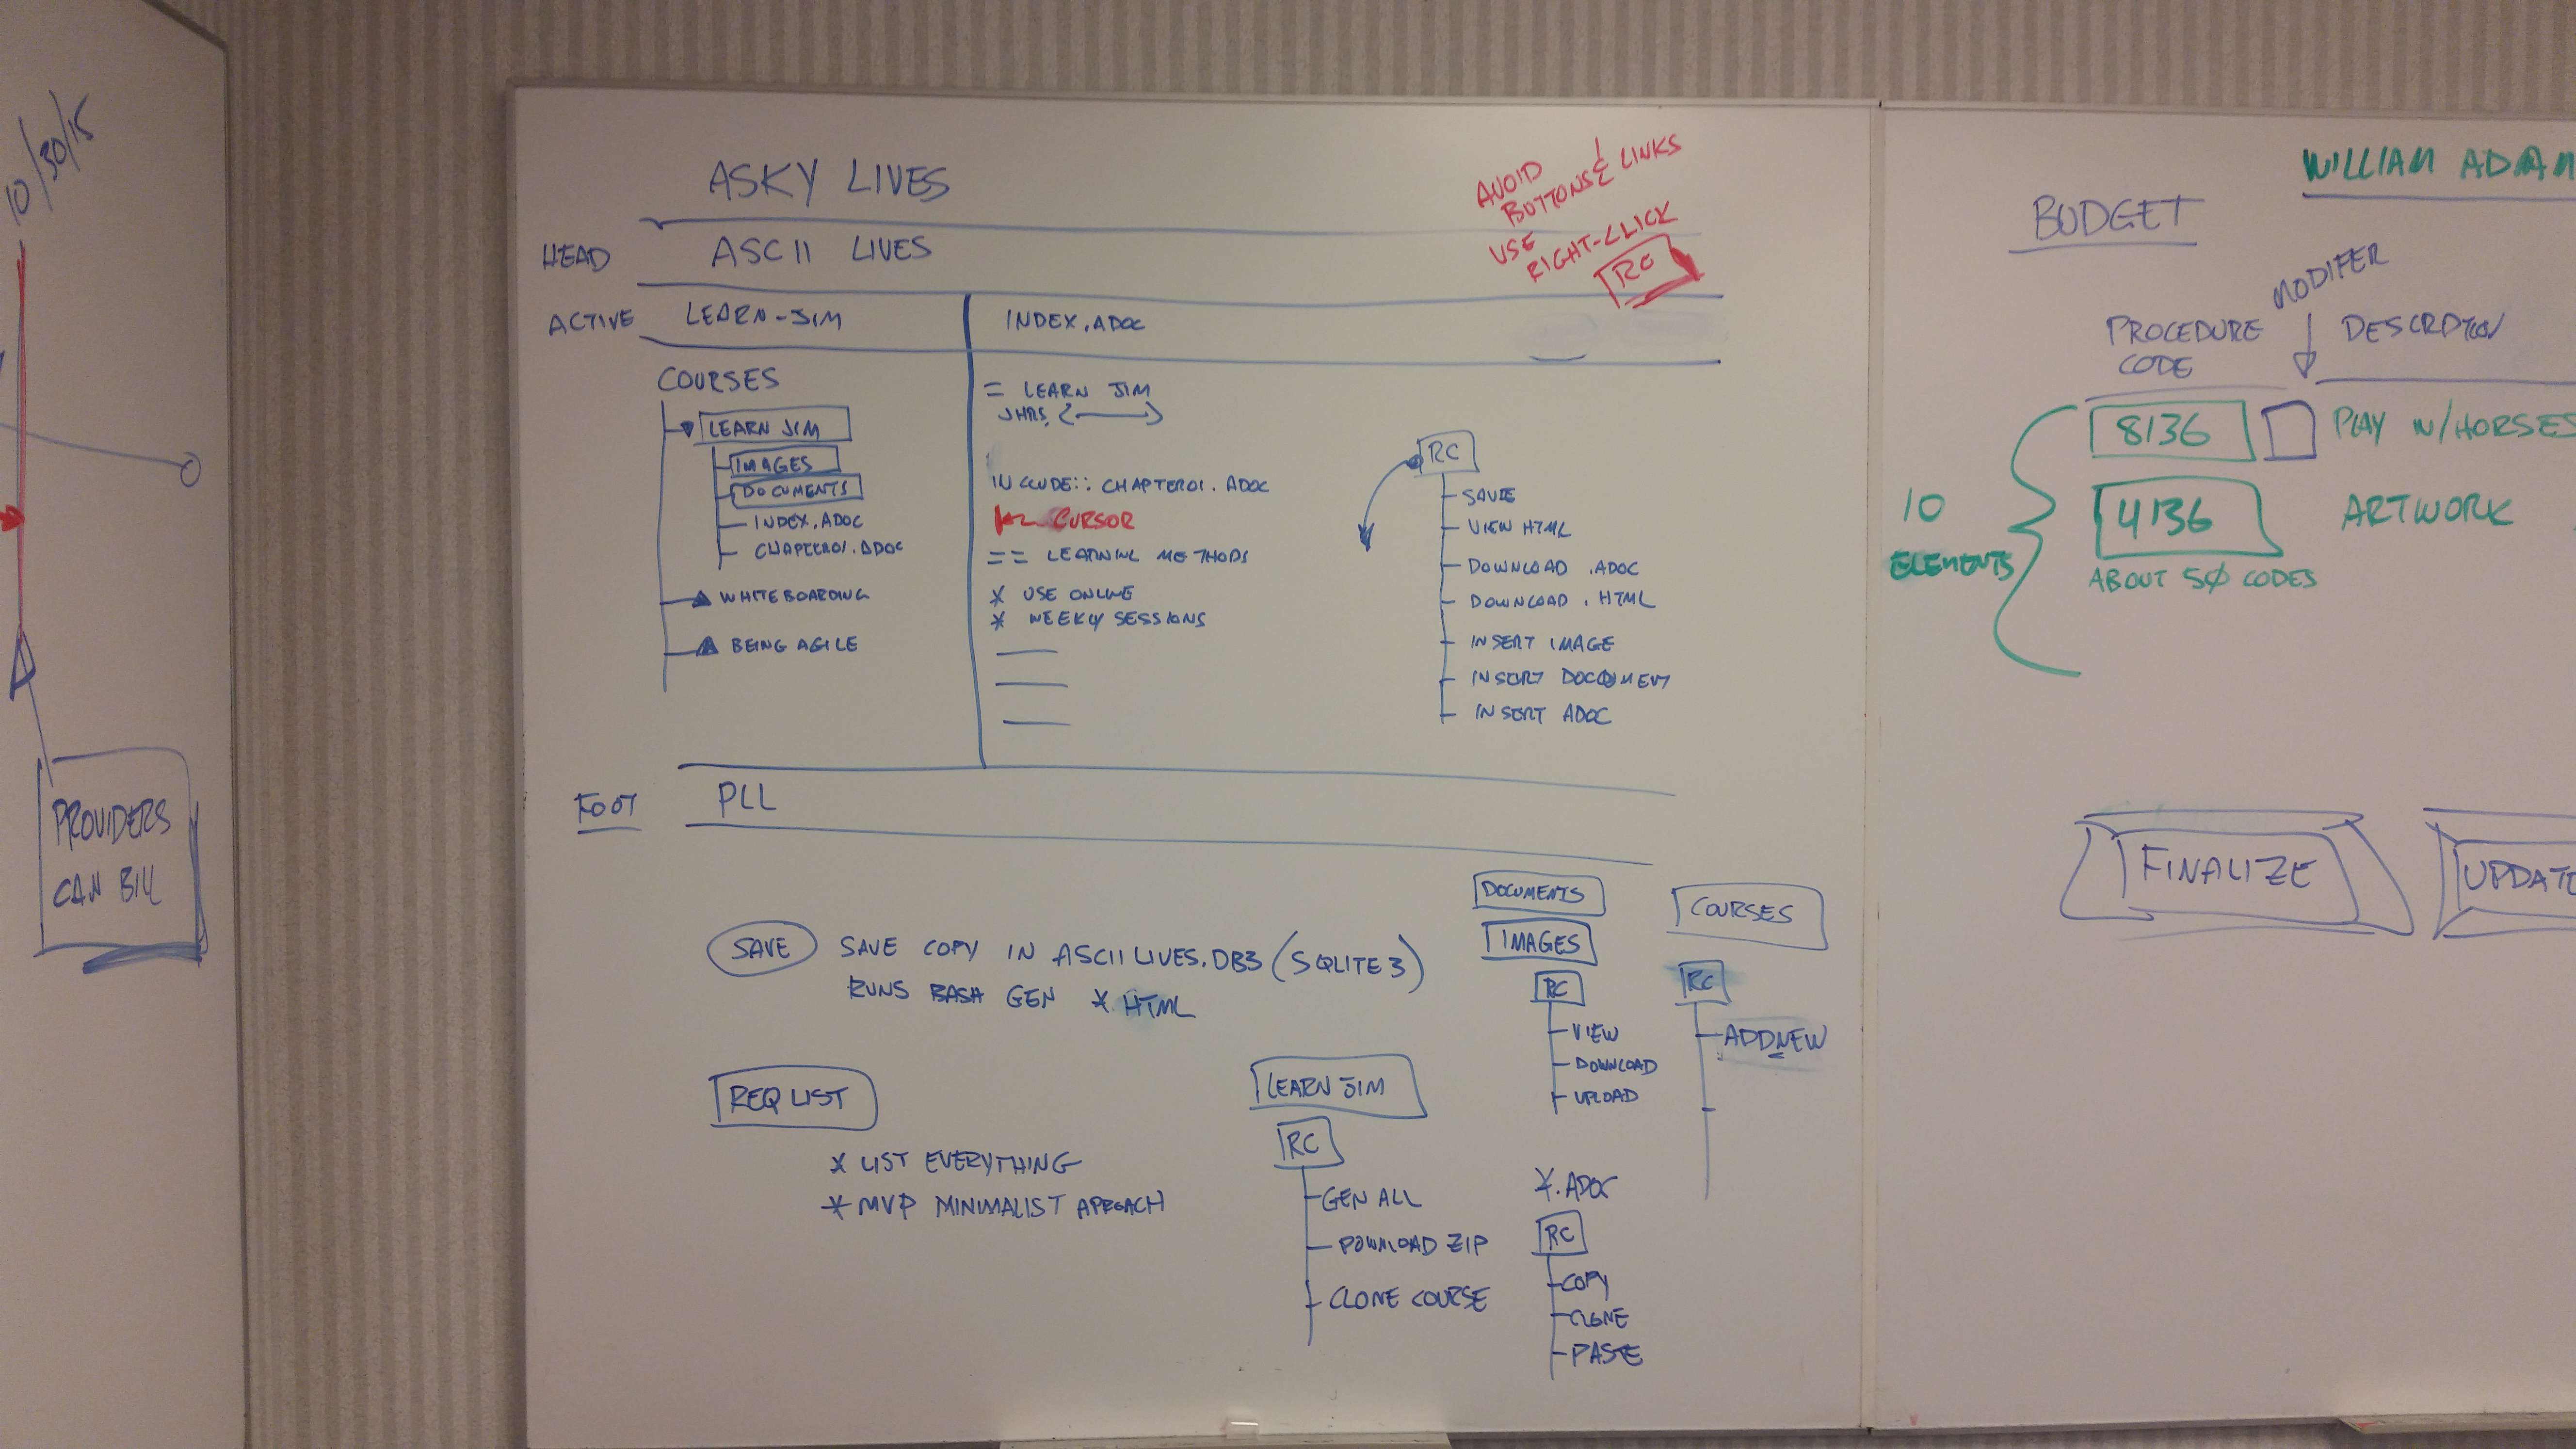 10/30/15
PROVIDERS
CAN BILL
ASKY LIVES
AVOID
BUTTONS & LINKS
USE
RIGHT-CLICK
RC
HEAD ASCII LIVES
ACTIVE LEARN-JIM INDEX.ADOC
COURSES
LEARN JIM
IMAGES
DOCUMENTS
INDEX.ADOC
CHAPTER01.ADOC
WHITEBOARDING
BEING AGILE
= LEARN JIM
INCLUDE:: CHAPTER01.ADOC
CURSOR
== LEARNING METHODS
* USE ONLINE
* WEEKLY SESSIONS
RC
SAVE
VIEW HTML
DOWNLOAD .ADOC
DOWNLOAD .HTML
INSERT IMAGE
INSERT DOCUMENT
INSERT ADOC
FOOT PLL
SAVE SAVE COPY IN ASCIILIVES.DB3 (SQLITE3)
RUNS BASH GEN *.HTML
REQ LIST
* LIST EVERYTHING
* MVP MINIMALIST APROACH
LEARN JIM
RC
GEN ALL
DOWNLOAD ZIP
CLONE COURSE
DOCUMENTS
IMAGES
RC
VIEW
DOWNLOAD
UPLOAD
COURSES
RC
ADDNEW
*.ADOC
RC
COPY
CLONE
PASTE
WILLIAM ADAM
BUDGET
MODIFER
PROCEDURE
CODE
DESCRPTION
8136 PLAY W/HORSES
4136 ARTWORK
10
ELEMENTS
ABOUT 50 CODES
FINALIZE
UPDATE